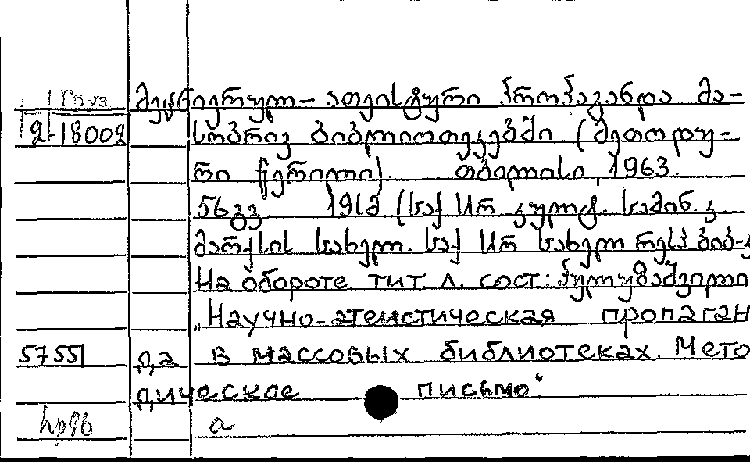 Груз. მეცნიერულ-ათეისტური პროპაგანდა მა-
2-18002 სობრივ ბიბლიოთეკებში (მეთოდუ-
რი წერილი). თბილისი, 1963.
56გვ. 19см (საქ სსრ კულტ. სამინ. კ.
მარქსის სახელ. საქ სსრ სახელ რესპ ბიბ-
На обороте тит. л. сост:
„Научно-атеистическая пропаган
5755 да в массовых библиотеках. Мето
дическое письмо"
а